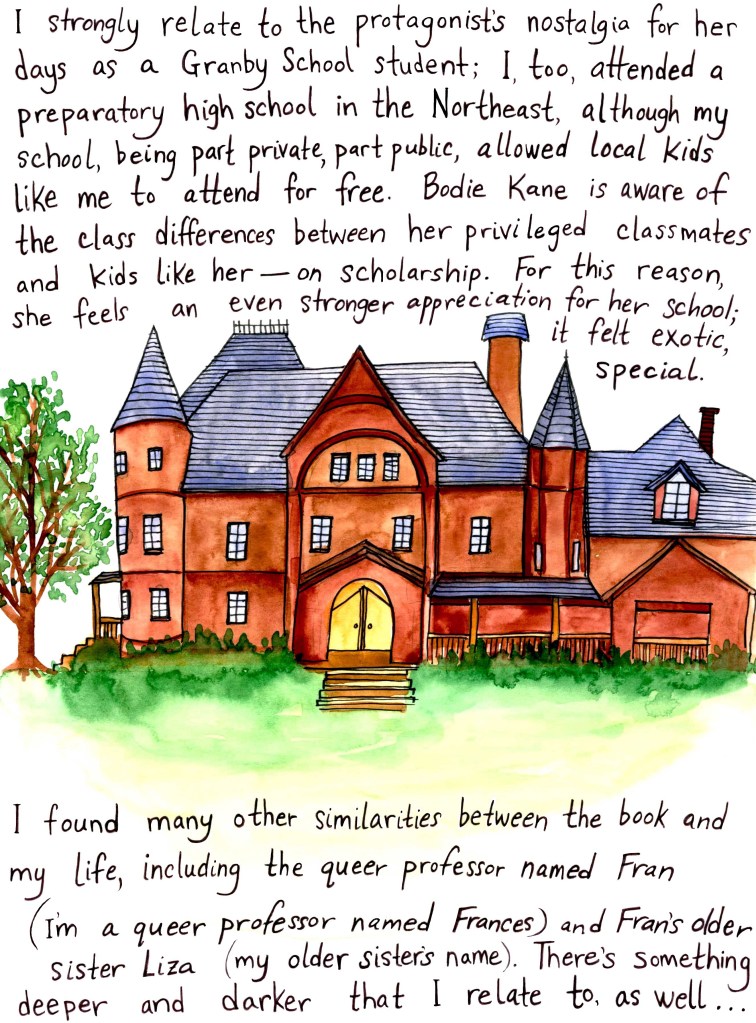 I strongly relate to the protagonist's nostalgia for her
days as a Granby School student; I, too, attended a
preparatory high school in the Northeast, although my
school, being part private, part public, allowed local kids
like me to attend for free. Bodie Kane is aware of
the class differences between her privileged classmates
and kids like her — on scholarship. For this reason,
she feels an even stronger appreciation for her school;
it felt exotic,
special.
I found many other similarities between the book and
my life, including the queer professor named Fran
(I'm a queer professor named Frances) and Fran's older
sister Liza (my older sister's name). There's something
deeper and darker that I relate to, as well...